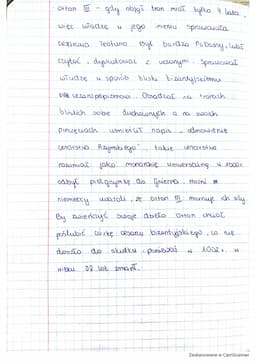 · Otton III – gdy objął tron miał tylko 4 lata,
więc władzę w jego imieniu sprawowała
cesarzowa Teofano. Był bardzo pobożny, lubił
czytać i dyskutować z uczonymi. Sprawował
władzę w sposób bliski bizantyjskiemu
cezaropapizmowi. Osadzał na tronach
bliskich sobie duchownych a na swoich
pieczęciach umieścił napis „odnowienie
cesarstwa Rzymskiego". Takie cesarstwo
rozumiał jako monarchię uniwersalną. W 1000r.
odbył pielgrzymkę do Gniezna. Możni
niemieccy uważali, że otton III marnuje ich siły.
By zwieńczyć swoje dzieło otton chciał
poślubić córkę cesarza bizantyjskiego, co nie
doszło do skutku, ponieważ w 1002r. w
wieku 22 lat zmarł.
Zeskanowane w CamScanner